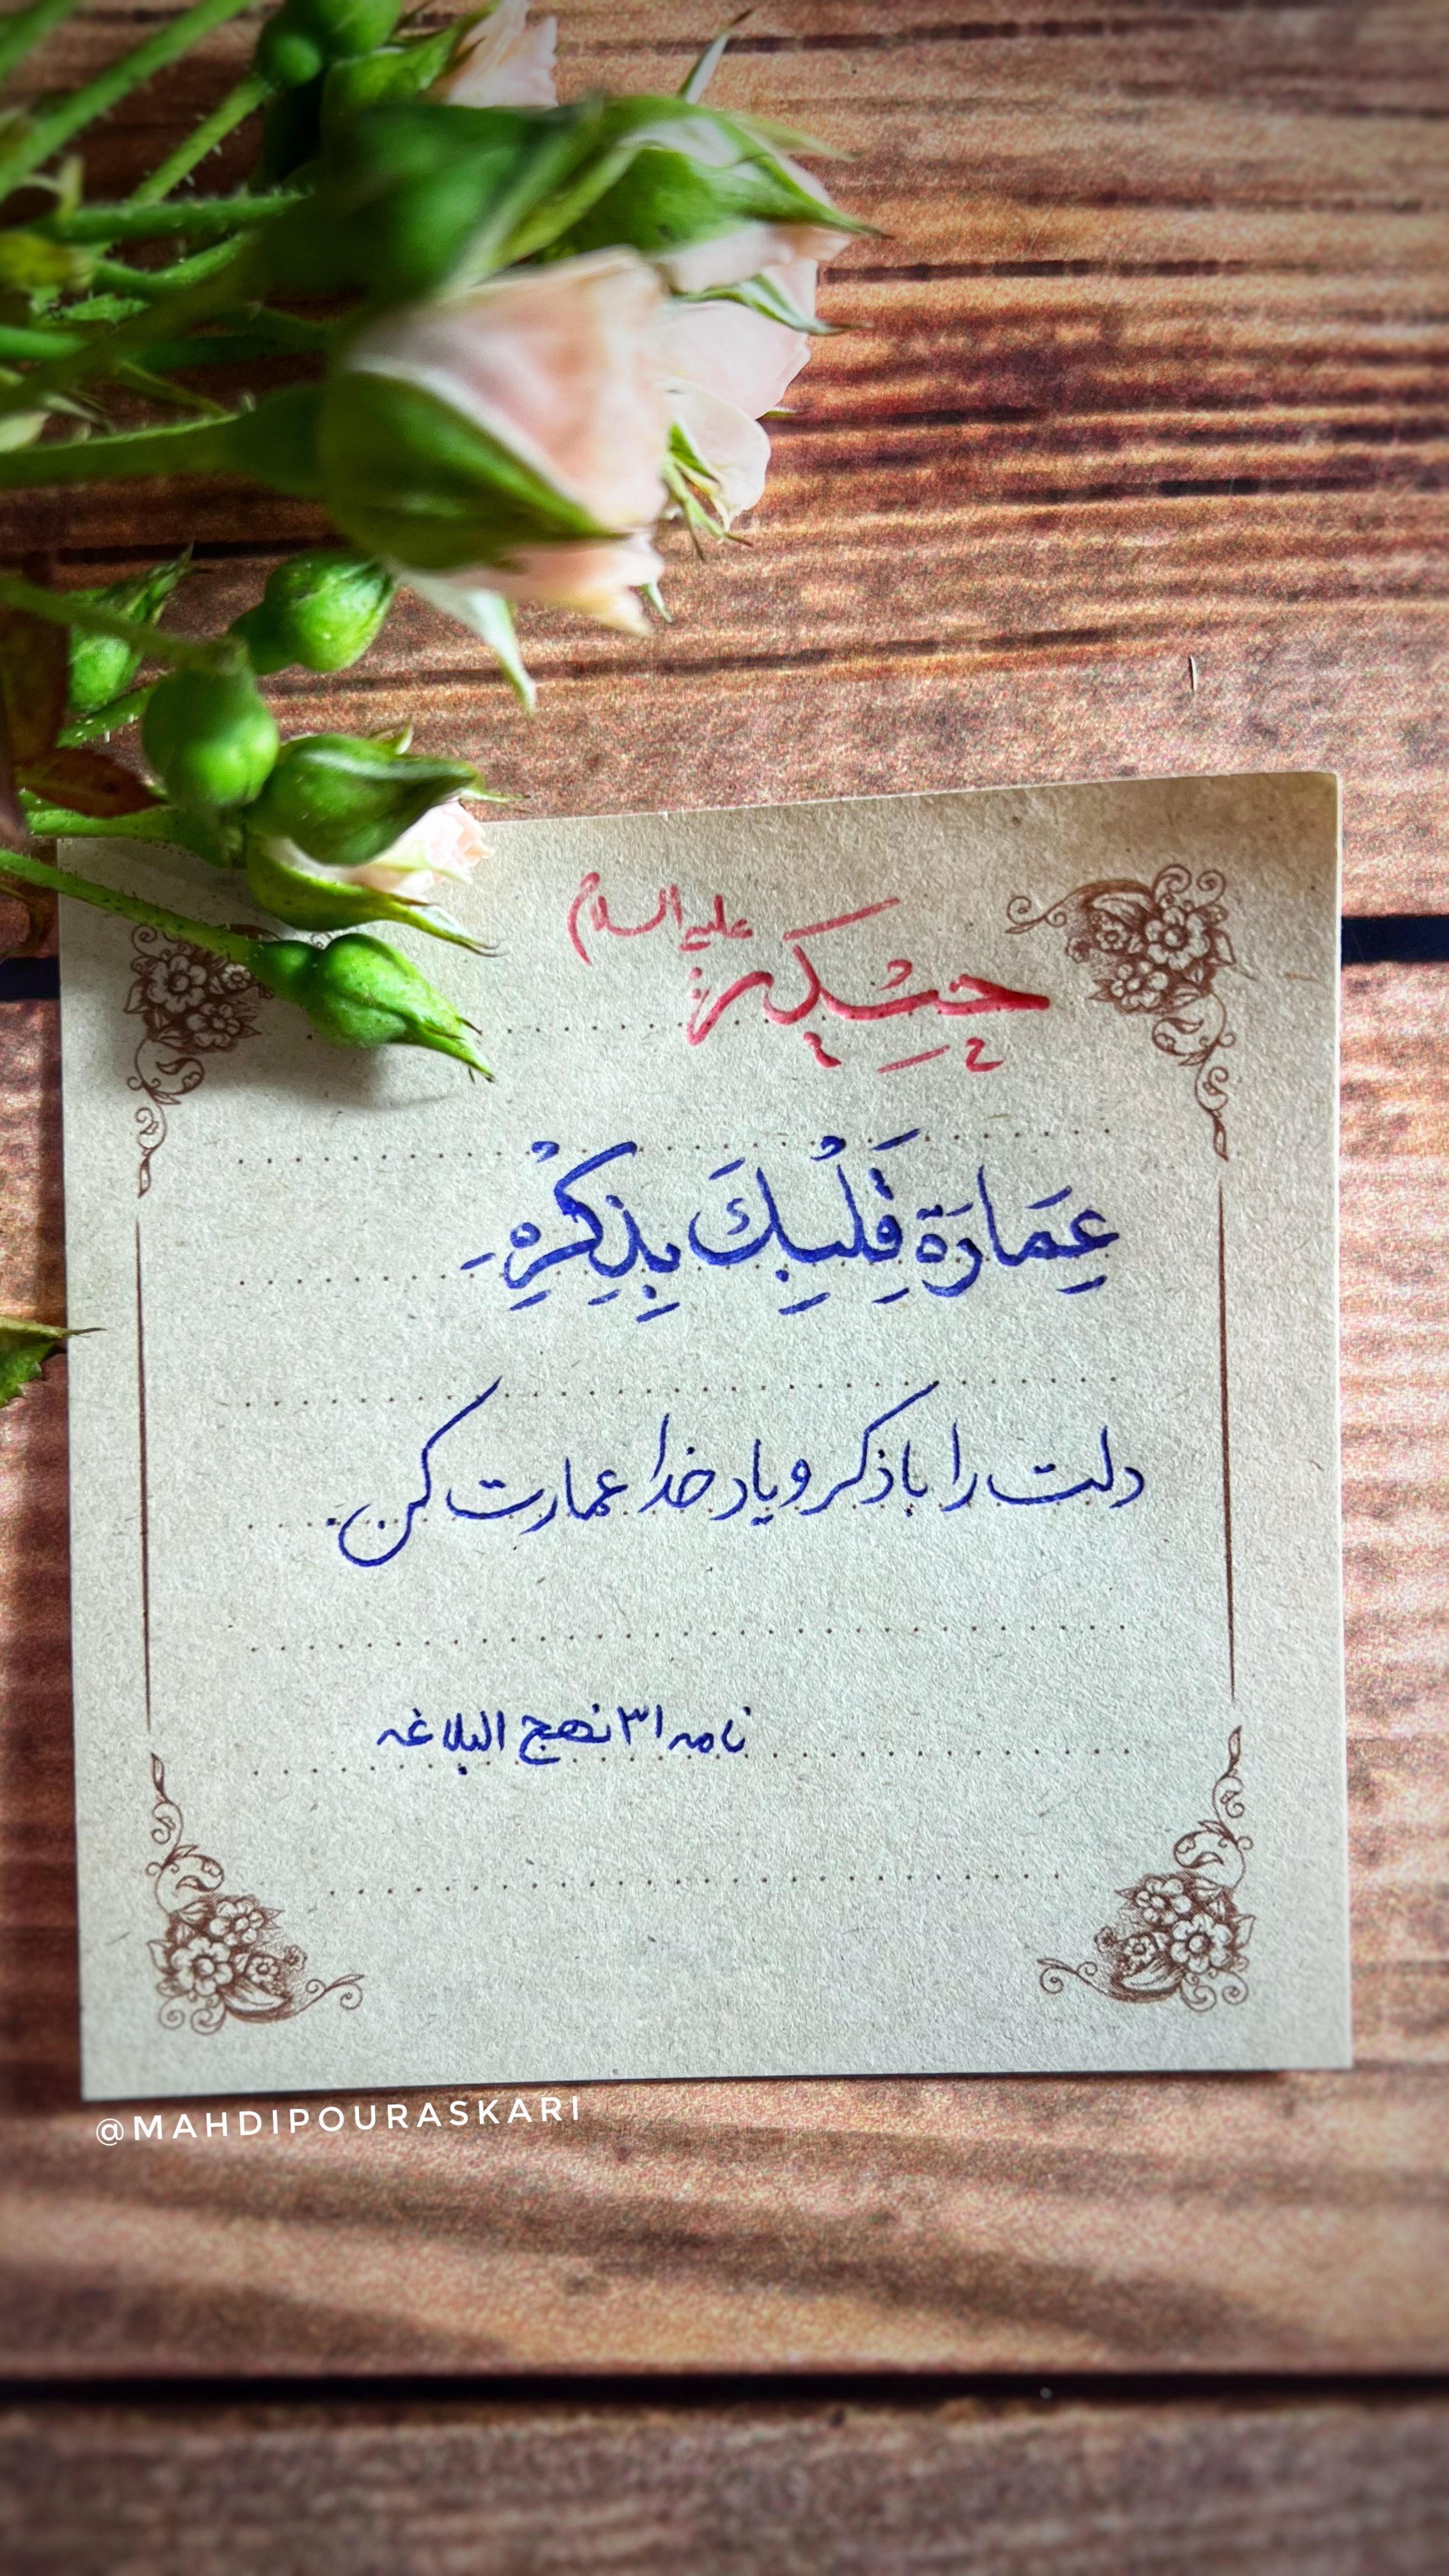 علیه السلام
حیدر
عِمَارَةِ قَلْبِكَ بِذِكْرِهِ
دلت را با ذکر و یاد خدا عمارت کن.
نامه ۳۱ نهج البلاغه
@MAHDIPOURASKARI